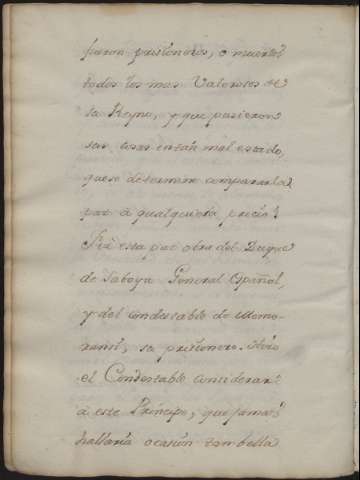 faron prisioneros, o muertos
todos los mas Valerosos de
su Reyno, y que pusieron
sus cosas en tan mal estado,
que se determinò compararla
paz à qualquiera precio.
Fuè esta paz obra del Duque
de Saboya General Español,
y del Condestable de Momo-
ransi, su prisionero. Hizo
el Condestable considerar
à este Principe, que jamas
hallaria ocasion tan bella